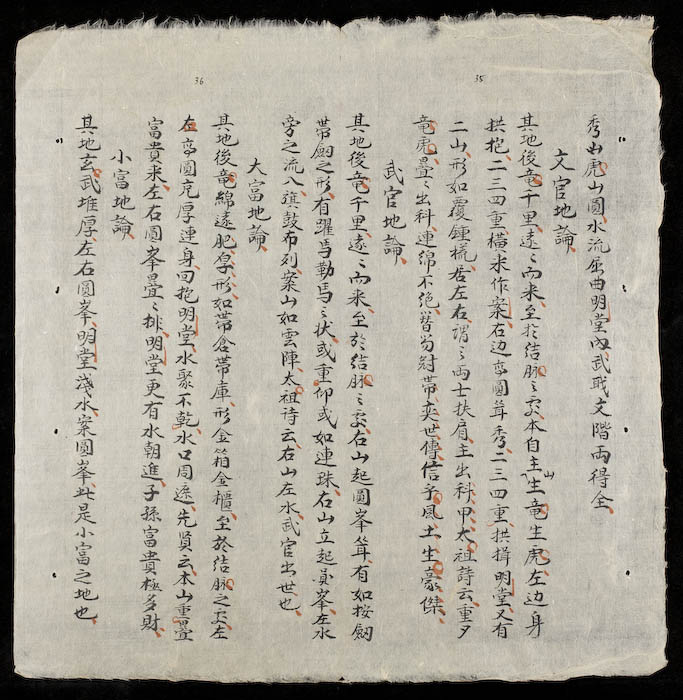 35
秀出虎山圓水流屈曲明堂內武職文階両得全
文官地論
其地後竜千里遠〻而来至扵結脉之處本自主山生竜生虎左边身
拱抱二三四重橫来作案右边亦圓茸秀二三四重拱揖明堂又有
二山形如覆鍾橈居左右謂之両士扶肩主出科甲太祖詩云重夕
竜虎疊〻出科連綿不絶替笏紂帶奕世傳信予風土生豪傑
武官地論
其地後竜千里遠〻而来至於結脉之處右山起圓峯耸有如按劔
帶劔之形有躍馬勒馬之状或重仰或如連珠右山立起員峯左水
旁之流八旗鼓布列案山如雲陣太祖詩云右山左水武官出世也
36
大富地論
其地後竜綿遠肥厚形如帶倉帶庫形金箱金櫃至於結脉之處左
右亦圓克厚連身回抱明堂水聚不乾水口周遮先賢云本山重疊
富貴来左右圓峯疊〻排明堂更有水朝進子孫富貴極多財
小富地論
其地玄武堆厚左右圓峯明堂淺水案圓峯此是小富之地也